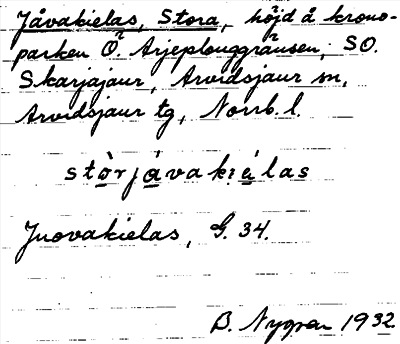 Jåvakielas, Stora, höjd å krono-
parken Ö. Arjeplouggränsen, SO.
Skarjajaur, Arvidsjaur sn,
Arvidsjaur tg, Norrb. l.
stòrjávakiélas
Juovakielas, G. 34.
B. Nygren 1932